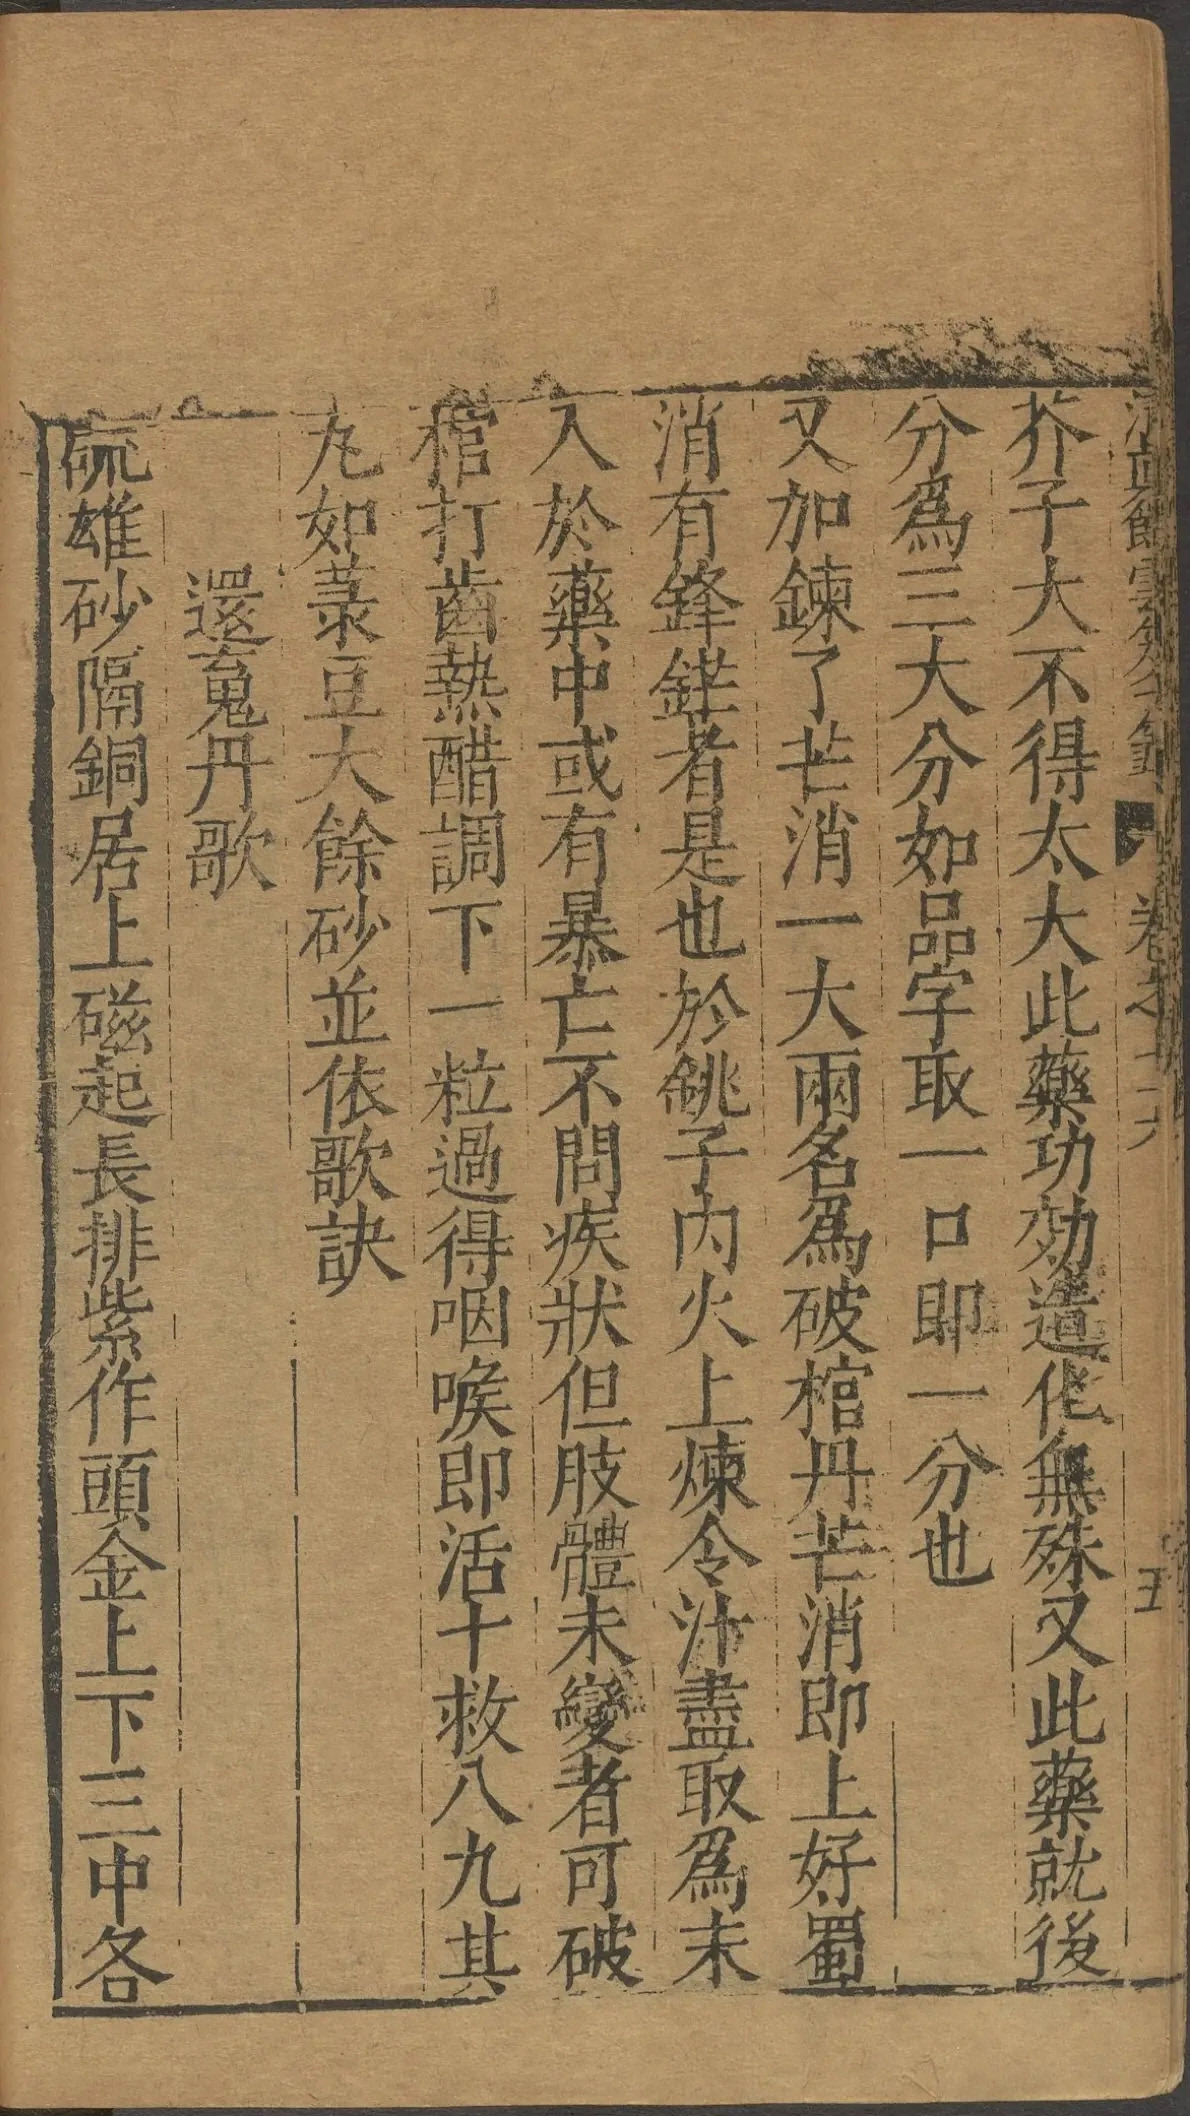 卷之
五
芥子大不得太大此藥功効造化無殊又此藥就後
分爲三大分如品字取一口即一分也
又加鍊了芒消一大兩名爲破棺丹芒消即上好蜀
消有鋒鋩者是也於銚子内火上煉令汁盡取爲末
入於藥中或有暴亡不問疾狀但肢體未變者可破
棺打齒熱醋調下一粒過得咽喉即活十救八九其
丸如菉豆大餘砂並依歌訣
還䰟丹歌
硫雄砂隔銅居上磁起長排紫作頭金上下三中各